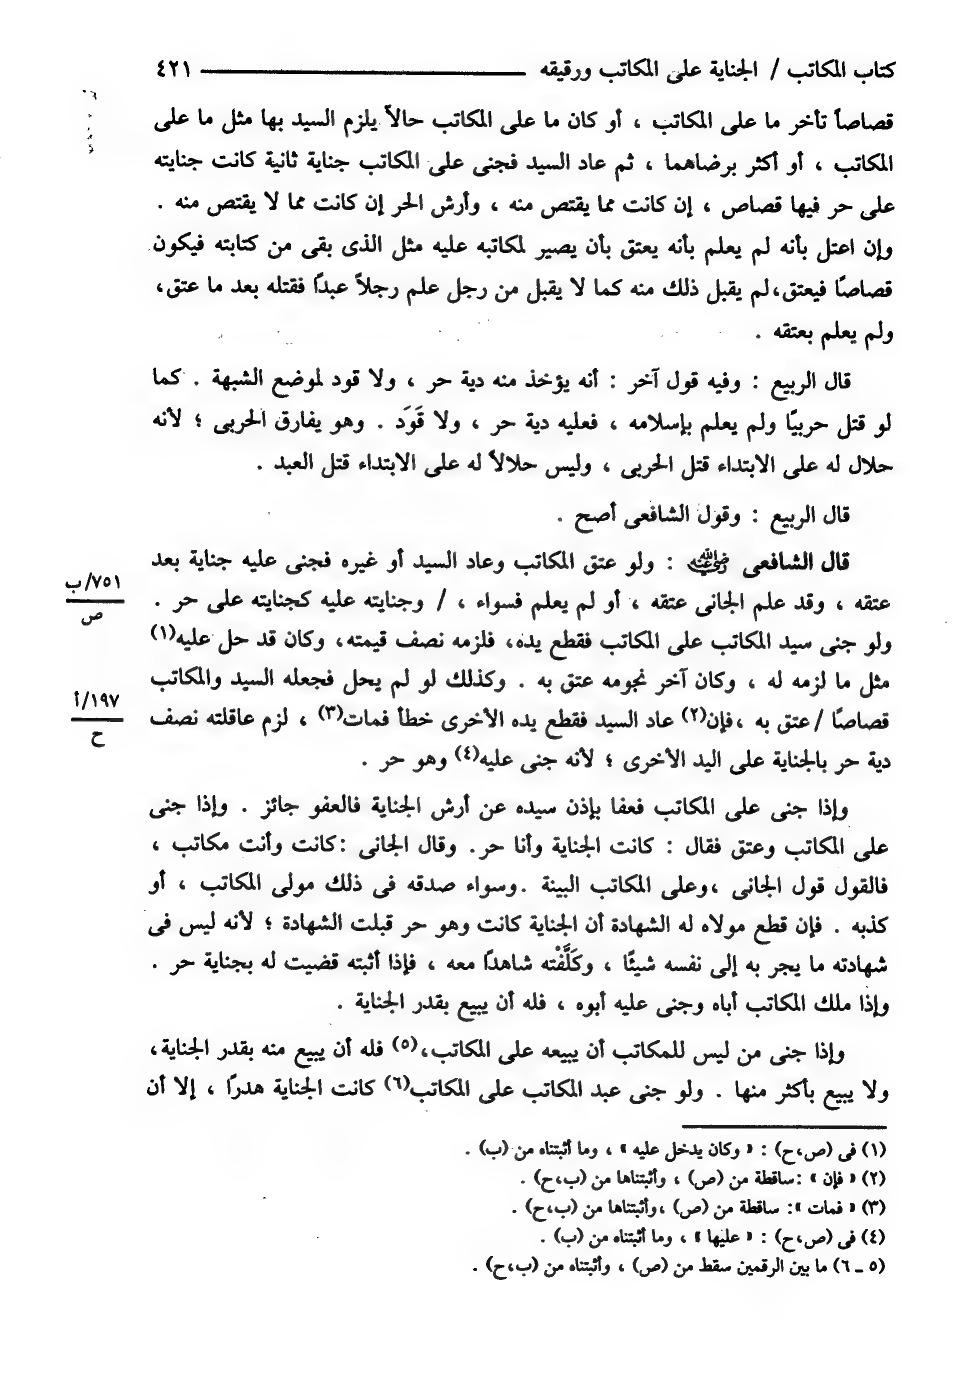 كتاب المكاتب / الجناية على المكاتب ورقيقه ٤٢١
قصاصاً تأخر ما على المكاتب ، أو كان ما على المكاتب حالاً يلزم السيد بها مثل ما على
المكاتب ، أو أكثر برضاهما ، ثم عاد السيد فجنى على المكاتب جناية ثانية كانت جنايته
على حر فيها قصاص ، إن كانت مما يقتص منه ، وأرش الحر إن كانت مما لا يقتص منه .
وإن اعتل بأنه لم يعلم بأنه يعتق بأن يصير لمكاتبه عليه مثل الذى بقى من كتابته فيكون
قصاصًا فيعتق،لم يقبل ذلك منه كما لا يقبل من رجل علم رجلاً عبدًا فقتله بعد ما عتق،
ولم يعلم بعتقه .
قال الربيع : وفيه قول آخر : أنه يؤخذ منه دية حر ، ولا قود لموضع الشبهة . كما
لو قتل حربيًا ولم يعلم بإسلامه ، فعليه دية حر ، ولا قَوَد . وهو يفارق الحربى ؛ لأنه
حلال له على الابتداء قتل الحربى ، وليس حلالاً له على الابتداء قتل العبد .
قال الربيع : وقول الشافعى أصح .
قال الشافعى رضي الله عنه : ولو عتق المكاتب وعاد السيد أو غيره فجنى عليه جناية بعد
٧٥١/ب
ص
عتقه ، وقد علم الجانى عتقه ، أو لم يعلم فسواء ، / وجنايته عليه كجنايته على حر .
ولو جنى سيد المكاتب على المكاتب فقطع يده، فلزمه نصف قيمته، وكان قد حل عليه(١)
مثل ما لزمه له ، وكان آخر نجومه عتق به . وكذلك لو لم يحل فجعله السيد والمكاتب
١٩٧/أ
ح
قصاصًا /عتق به ،فإن(٢) عاد السيد فقطع يده الأخرى خطأ فمات(٣) ، لزم عاقلته نصف
دية حر بالجناية على اليد الأخرى ؛ لأنه جنى عليه(٤) وهو حر .
وإذا جنى على المكاتب فعفا بإذن سيده عن أرش الجناية فالعفو جائز . وإذا جنى
على المكاتب وعتق فقال : كانت الجناية وأنا حر. وقال الجانى :كانت وأنت مكاتب ،
فالقول قول الجانى ،وعلى المكاتب البينة .وسواء صدقه فى ذلك مولى المكاتب ، أو
كذبه . فإن قطع مولاه له الشهادة أن الجناية كانت وهو حر قبلت الشهادة ؛ لأنه ليس فى
شهادته ما يجر به إلى نفسه شيئًا ، وكَلَّفْته شاهدًا معه ، فإذا أثبته قضيت له بجناية حر .
وإذا ملك المكاتب أباه وجنى عليه أبوه ، فله أن يبيع بقدر الجناية .
وإذا جنى من ليس للمكاتب أن يبيعه على المكاتب،(٥) فله أن يبيع منه بقدر الجناية،
ولا يبيع بأكثر منها . ولو جنى عبد المكاتب على المكاتب(٦) كانت الجناية هدرًا ، إلا أن
(١) فى (ص،ح) : « وكان يدخل عليه » ، وما أثبتناه من (ب) .
(٢) « فإن » :ساقطة من (ص) ، وأثبتناها من (ب،ح) .
(٣) « فمات »: ساقطة من (ص) ،وأثبتناها من (ب،ح) .
(٤) فى (ص،ح) : « عليها » ، وما أثبتناه من (ب) .
(٥ ـ ٦) ما بين الرقمين سقط من (ص) ، وأثبتناه من (ب،ح) .